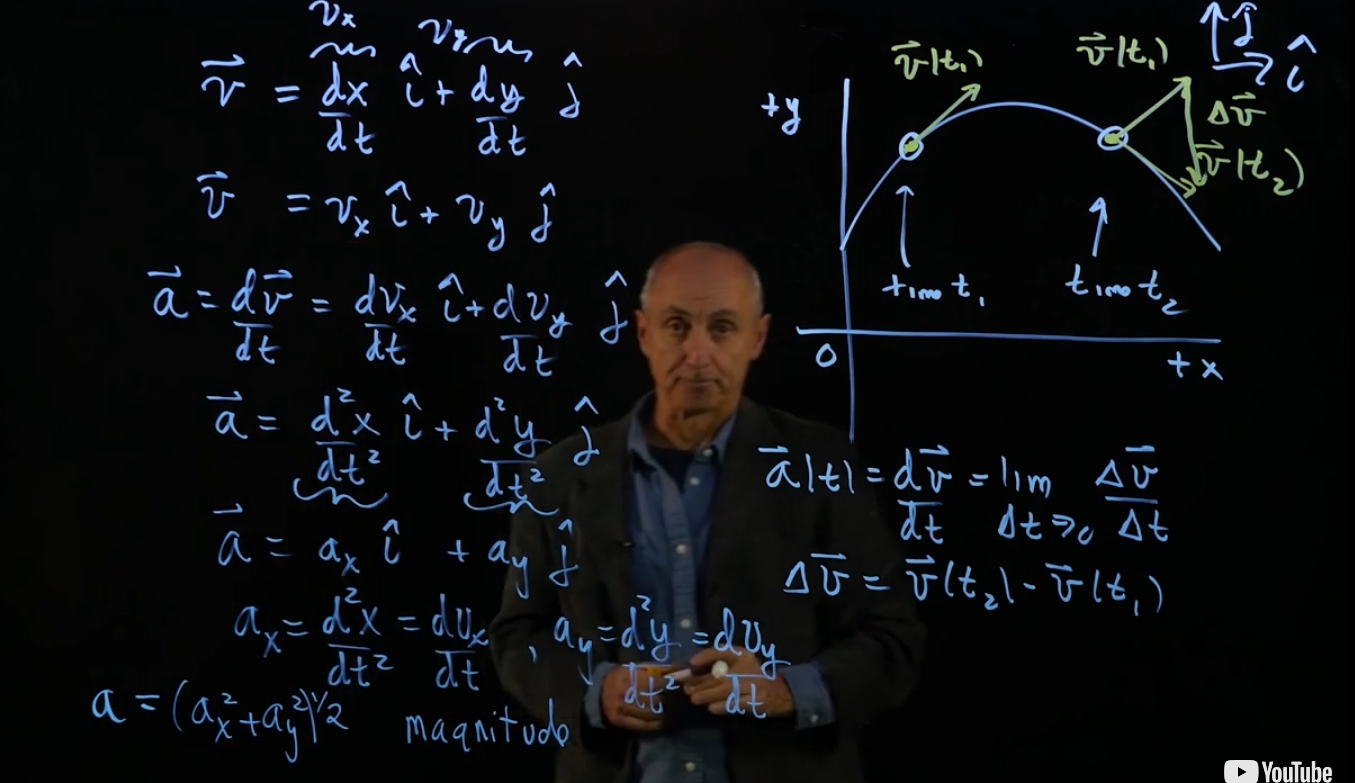 v_x v_y
v⃗ = dx/dt î + dy/dt ĵ
v⃗ = v_x î + v_y ĵ
a⃗ = dv⃗/dt = dv_x/dt î + dv_y/dt ĵ
a⃗ = d²x/dt² î + d²y/dt² ĵ
a⃗ = a_x î + a_y ĵ
a_x = d²x/dt² = dv_x/dt , a_y = d²y/dt² = dv_y/dt
a = (a_x² + a_y²)^1/2 magnitude
ĵ
î
v⃗(t₁)
v⃗(t₁)
Δv⃗
v⃗(t₂)
+y
time t₁
time t₂
0
+x
a⃗(t) = dv⃗/dt = lim Δt→0 Δv⃗/Δt
Δv⃗ = v⃗(t₂) - v⃗(t₁)
YouTube